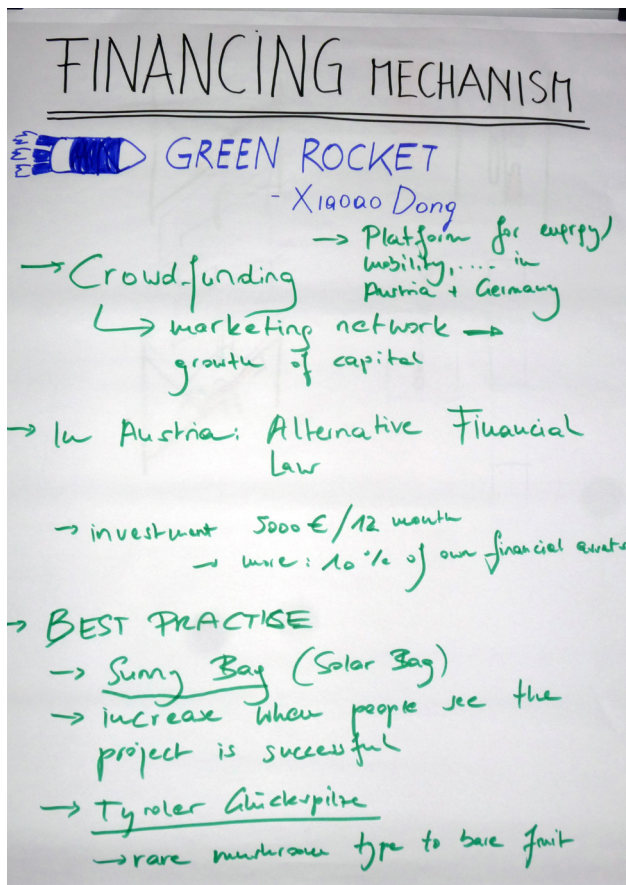 FINANCING MECHANISM
GREEN ROCKET
- Xiaoao Dong
→ Platform for energy,
mobility,.... in
Austria + Germany
→ Crowd-funding
↳ marketing network →
growth of capital
→ In Austria: Alternative Financial
Law
→ investment 5000 € / 12 month
→ more: 10 % of own financial assets
→ BEST PRACTISE
→ Sunny Bag (Solar Bag)
→ increase when people see the
project is successful
→ Tyroler Glückspilze
→ rare mushroom type to bare fruit